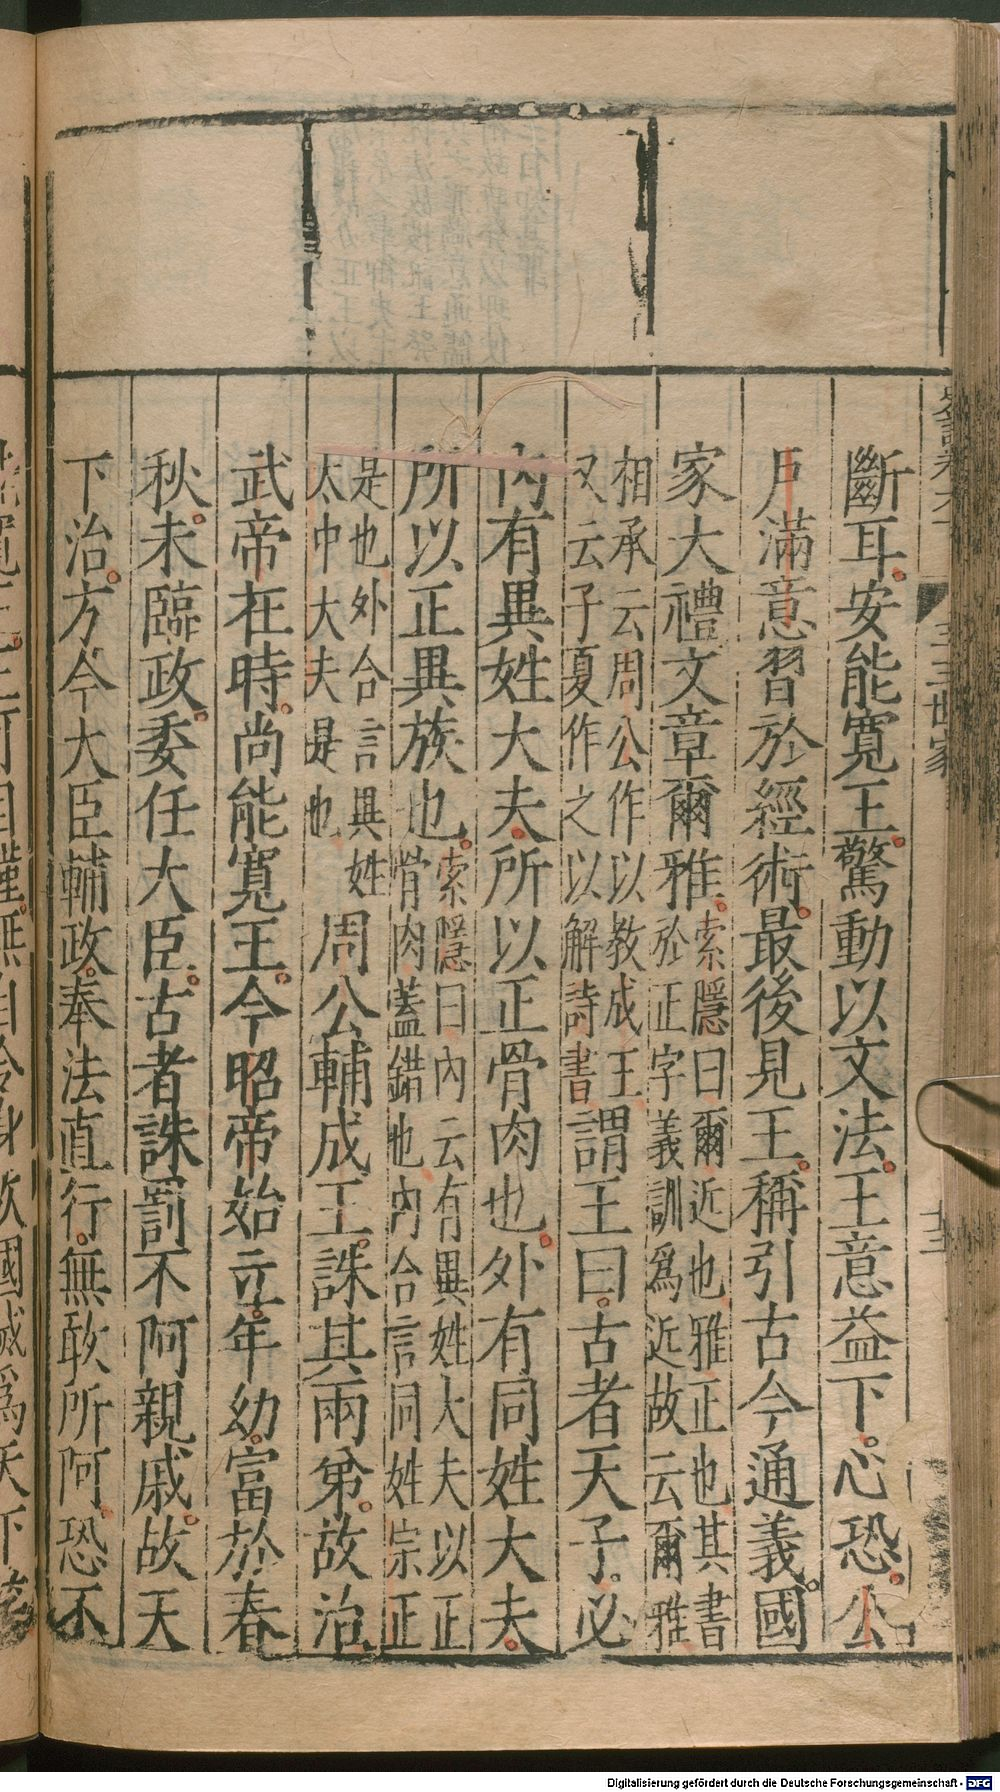 史記卷六十
三王世家
十三
斷耳安能寬王驚動以文法王意益下心恐公
戶滿意習於經術最後見王稱引古今通義國
家大禮文章爾雅
索隱曰爾近也雅正也其書
於正字義訓爲近故云爾雅
相承云周公作以教成王
又云子夏作之以解詩書
謂王曰古者天子必
內有異姓大夫所以正骨肉也外有同姓大夫
所以正異族也
索隱曰內云有異姓大夫以正
骨肉蓋錯也內合言同姓宗正
是也外合言異姓
太中大夫是也
周公輔成王誅其兩弟故治
武帝在時尚能寬王今昭帝始立年幼富於春
秋未臨政委任大臣古者誅罰不阿親戚故天
下治方今大臣輔政奉法直行無敢所阿恐不
Digitalisierung gefördert durch die Deutsche Forschungsgemeinschaft - DFG